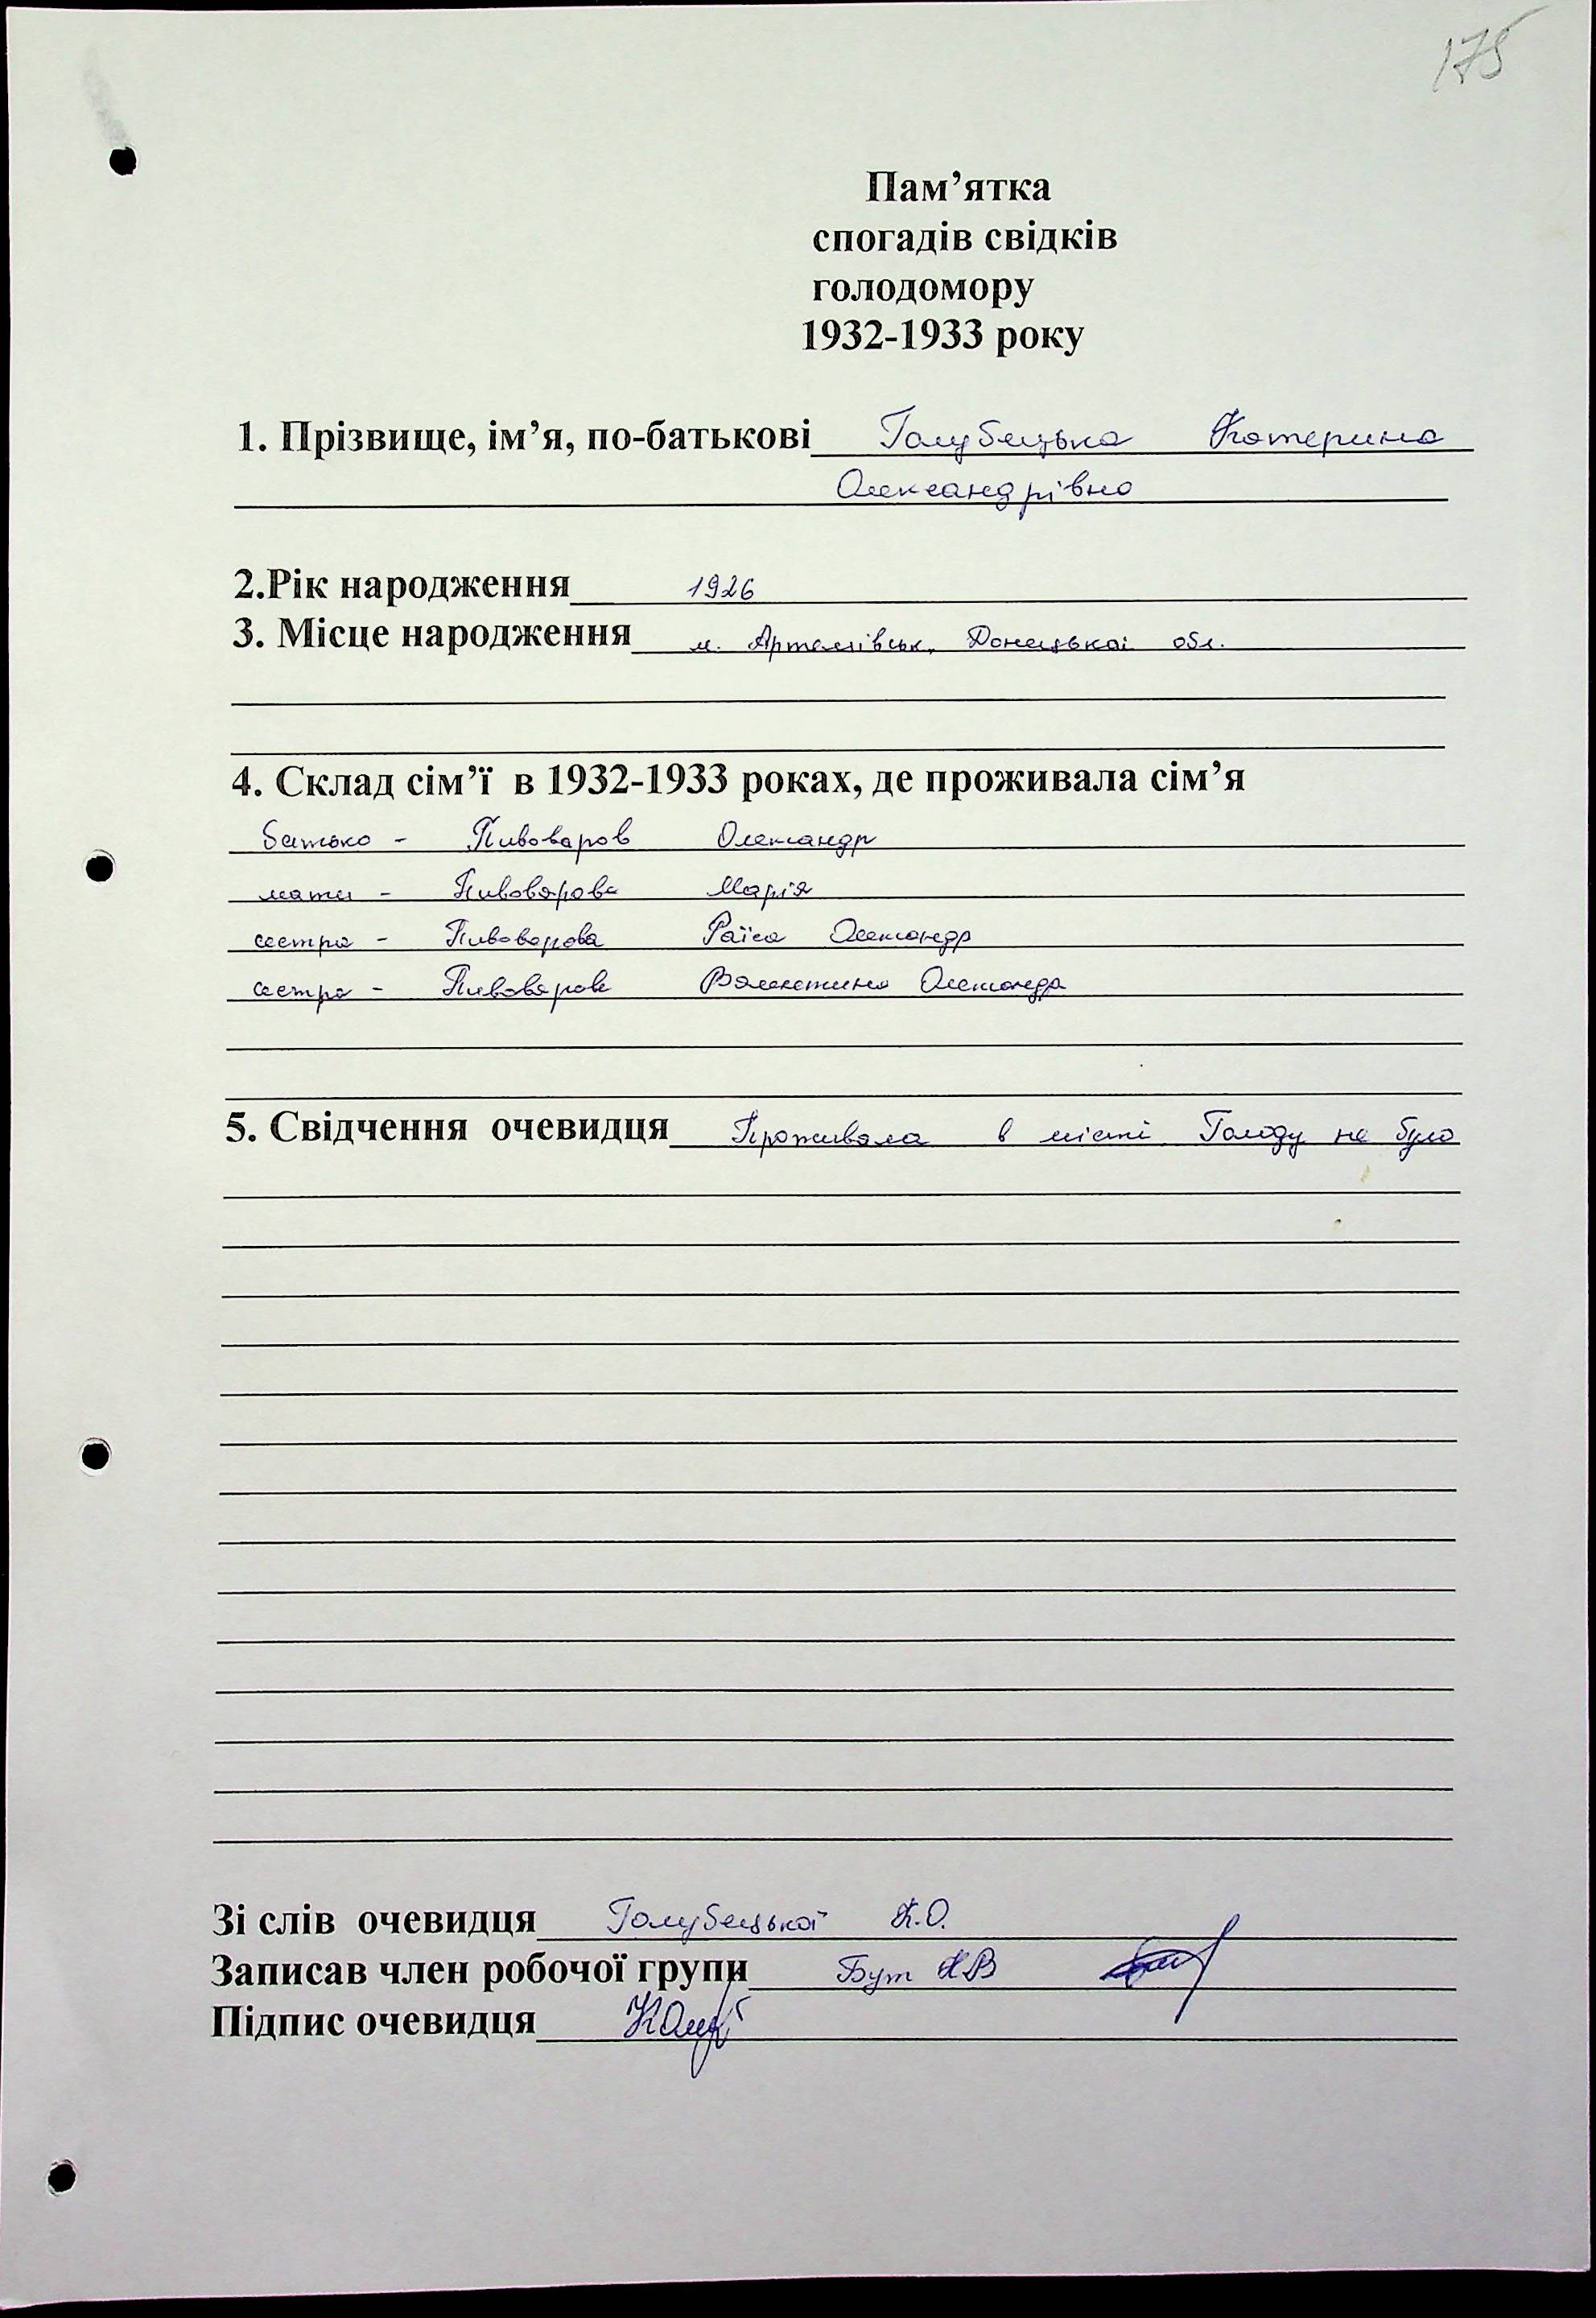 175
Пам’ятка
спогадів свідків
голодомору
1932-1933 року
1. Прізвище, ім’я, по-батькові Голубецька Катерина
Олександрівна
2.Рік народження 1926
3. Місце народження м. Артемівськ, Донецької обл.
4. Склад сім’ї в 1932-1933 роках, де проживала сім’я
батько - Пивоваров Олександр
мати - Пивоварова Марія
сестра - Пивоварова Раїса Олександр
сестра - Пивоварова Валентина Олександр
5. Свідчення очевидця Проживала в місті. Голоду не було
Зі слів очевидця Голубецької К.О.
Записав член робочої групи Бут
Підпис очевидця